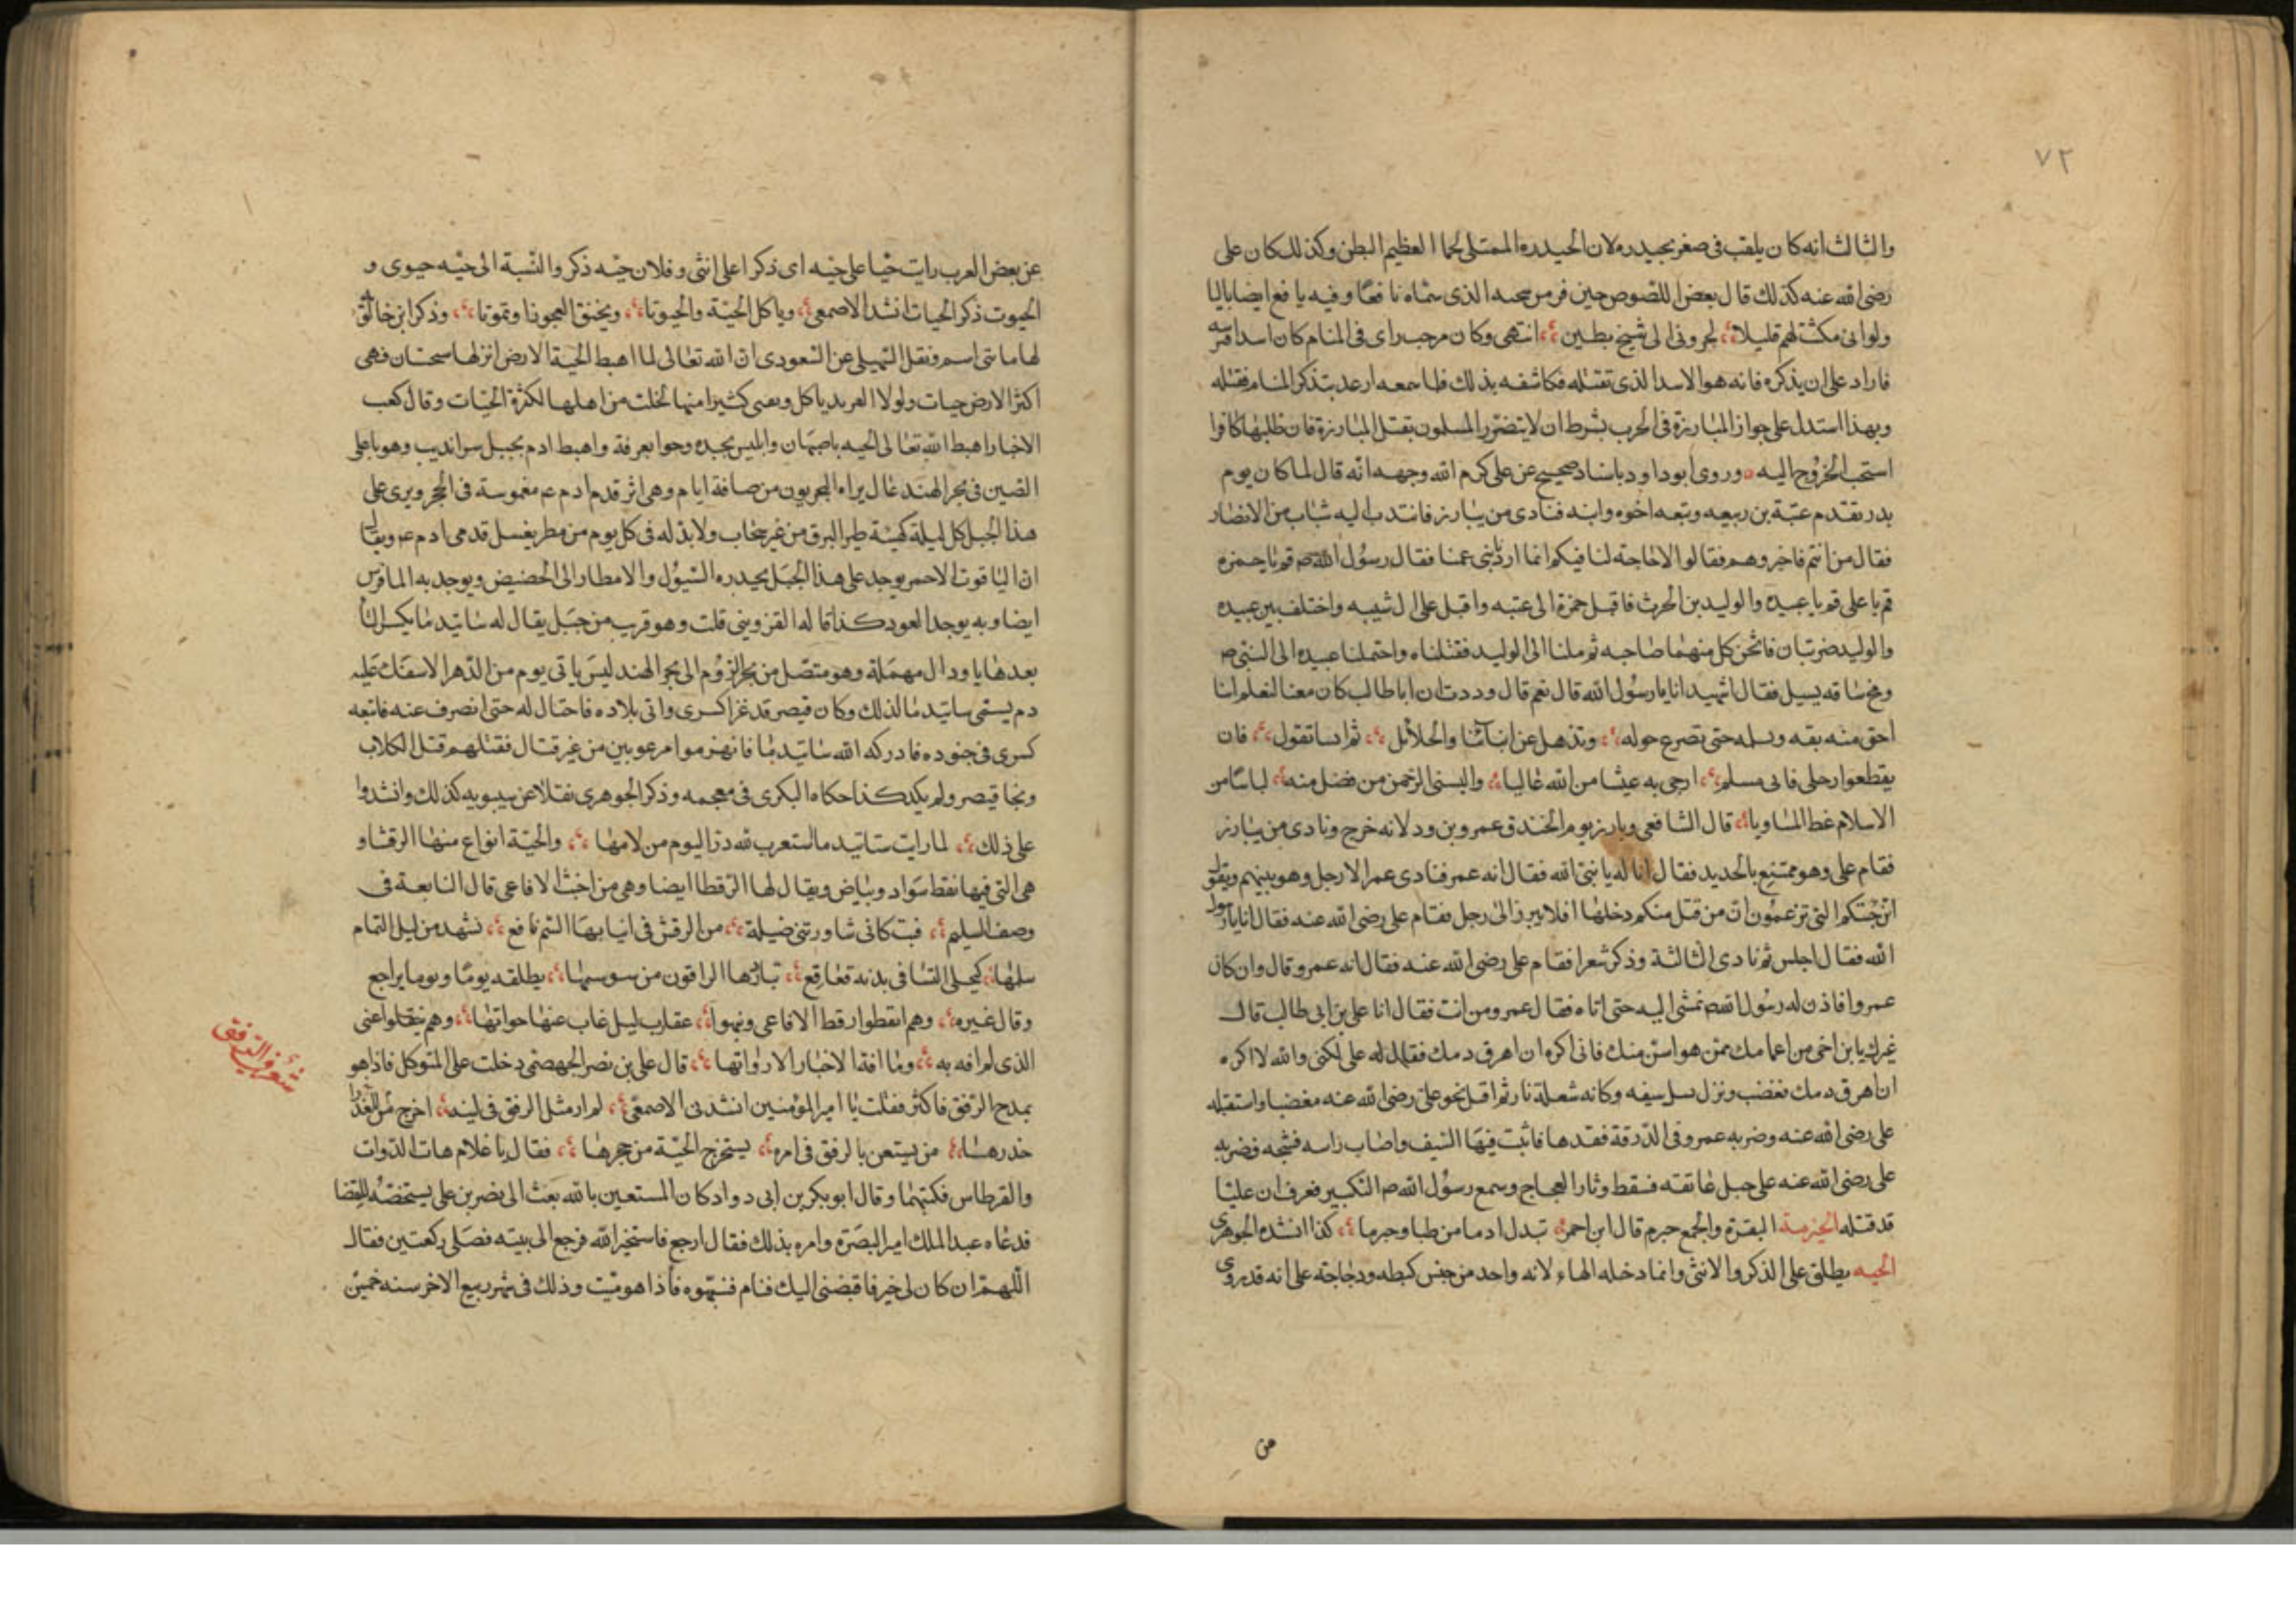 ٧٢
والثالث انه كان يلقب فى صغر بحيدره لان الحيدره الممتلى لحما العظيم البطن وكذلك كان على
رضى الله عنه كذلك قال بعض اللصوص حين فر من سجنه الذى سماه نافعا وفيه يافع ايضا بالياء
ولو انى مكثت لهم قليلا لجرونى الى شيخ بطين انتهى وكان مرحب راى فى المنام كان اسدا افترسه
فاراد على ان يذكره فانه هو الاسد الذى تقتله فكاشفه بذلك فلما سمعه ارعد بتذكر المنام فقتله
وبهذا استدل على جواز المبارزة فى الحرب بشرط ان لا يتضرر المسلمون بقتل المبارزة فان طلبها كافر
استحب الخروج اليه وروى ابوداود باسناد صحيح عن على كرم الله وجهه انه قال لما كان يوم
بدر تقدم عتبة بن ربيعه وتبعه اخوه وابنه فنادى من يبارز فانتدب اليه شباب من الانصار
فقال من انتم فاخبروهم فقالوا لا حاجة لنا فيكم انما اردنا بنى عمنا فقال رسول الله ص قم يا حمزه
قم يا على قم يا عبيده والوليد بن الحرث فاقبل حمزة الى عتبه واقبل على ال شيبه واختلف بين عبيده
والوليد ضربتان فاثخن كل منهما صاحبه ثم ملنا الى الوليد فقتلناه واحتملنا عبيده الى النبى ص
ومخ ساقه يسيل فقال اشهيد انا يا رسول الله قال نعم قال وددت ان اباطالب كان معنا لنعلم اننا
احق منه بقه ونسلمه حتى نصرع حوله ونذهل عن ابنائنا والحلائل ثم انساء تقول فان
يقطعوا رجلى فانى مسلم ارجى به عيشا من الله غاليا والبسنى الرحمن من فضل منه لباسا من
الاسلام غطا المساويا قال الشافعى وبارز يوم الخندق عمرو بن ود لانه خرج ونادى من يبارز
فقام على وهو مقنع بالحديد فقال انا له يا نبى الله فقال انه عمر فنادى عمر الا رجل وهو يبينهم ويقول
اين جنتكم التى تزعمون ان من قتل منكم دخلها افلا يبرز الى رجل فقام على رضى الله عنه فقال انا يا رسول
الله فقال اجلس ثم نادى الثالثة وذكر شعرا فقام على رضى الله عنه فقال انه عمرو قال وان كان
عمروا فاذن له رسول الله ص فمشى اليه حتى اتاه فقال عمرو من انت فقال انا على بن ابى طالب قال
غيرك يا بن اخى من اعمامك ممن هو اسن منك فانى اكره ان اهرق دمك فقال له على لكنى والله لا اكره
ان اهرق دمك فغضب ونزل وسل سيفه وكانه شعلة نار ثم اقبل نحو على رضى الله عنه مغضبا واستقبله
على رضى الله عنه وضربه عمرو فى الدرقة فقدها فاثبت فيها السيف واصاب راسه فشجه فضربه
على رضى الله عنه على حبل عاتقه فسقط وثار العجاج وسمع رسول الله ص التكبير فعرف ان عليا
قد قتله الحيرمة البقرة والجمع حيرم قال ابن احمر تبدل ادما من ظبا وحيرما كذا انشده الجوهرى
الحيه يطلق على الذكر والانثى وانما دخله الهاء لانه واحد من جنس كبطه ودجاجة على انه قد روى
من
عن بعض العرب رايت حيا على حيه اى ذكرا على انثى وفلان حيه ذكر والنسبة الى حيه حيوى و
الحيوت ذكر الحيات انشد الاصمعى وياكل الحية والحيوتا ويخنق العجوز او تموتا وذكر ابن خالويه
لها مائتى اسم ونقل السهيلى عن المسعودى ان الله تعالى لما اهبط الحية الارض انزلها سجستان فهى
اكثر الارض حيات ولولا العربد ياكل ويفنى كثيرا منها لخلت من اهلها لكثرة الحيات وقال كعب
الاخبار اهبط الله تعالى الحيه باصبهان وابليس بجده وحوا بعرفة واهبط ادم بجبل سرانديب وهو باعلى
الصين فى بحر الهند عال يراه البحريون من مسافة ايام وهى اثر قدم ادم عم مغموسة فى الحجر ويرى على
هذا الجبل كل ليلة كهيئة طير البرق من غير سحاب ولا بد له فى كل يوم من مطر يغسل قدمى ادم عم ويقال
ان الياقوت الاحمر يوجد على هذا الجبل يحدره السيول والامطار الى الحضيض ويوجد به الماس
ايضا وبه يوجد العود كذا قاله القزوينى قلت وهو قريب من جبل يقال له ساتيدما بكسر التا
بعدها يا ودال مهملة وهو متصل من بحر الروم الى بحر الهند ليس ياتى يوم من الدهر الا سفك عليه
دم يسمى ساتيدما لذلك وكان قيصر قد غزا كسرى واتى بلاده فاحتال له حتى انصرف عنه فاتبعه
كسرى فى جنوده فادركه الله ساتيدما فانهزموا مرعوبين من غير قتال فقتلهم قتل الكلاب
ونجا قيصر ولم يكد كذا حكاه البكرى فى معجمه وذكر الجوهرى نقلا عن سيبويه كذلك وانشدوا
على ذلك لما رات ساتيدما استعبرت لله در اليوم من لامها والحية انواع منها الرقشا و
هى التى فيها نقط سواد وبياض ويقال لها الرقطا ايضا وهى من اخبث الافاعى قال النابعة فى
وصف السليم فبت كانى ساورتنى ضيلة من الرقش فى انيابها السم نافع تشهد من ليل التمام
سلمها كحلى النسا فى يديه قعاقع تبادرها الراقون من سوسمها يطلقه يوما ويوما يراجع
وقال غيره وهم ايقظوا رقط الافاعى ونبهوا عقارب ليل غاب عنها حواتها وهم نقلوا عنى
الذى لم افه به وما افة الاخبار الا رواتها قال على بن نصر الجهضمى دخلت على المتوكل فاذا هو
يمدح الرفق فاكثر فقلت يا امير المؤمنين انشدنى الاصمعى لم ار مثل الرفق فى لينه اخرج من العذرا
خدرها من يستعن بالرفق فى امره يستخرج الحية من جحرها فقال يا غلام هات الدوات
والقرطاس فكتبهما وقال ابو بكر بن ابى دواد كان المستعين بالله بعث الى نصر بن على يستخضه للقضا
فدعاه عبدالملك امير البصرة وامره بذلك فقال ارجع فاستخير الله فرجع الى بيته فصلى ركعتين فقال
اللهم ان كان لى خير فاقبضنى اليك فنام فنبهوه فاذا هو ميت وذلك فى شهر ربيع الاخر سنه خمسين
شعر فى الرفق